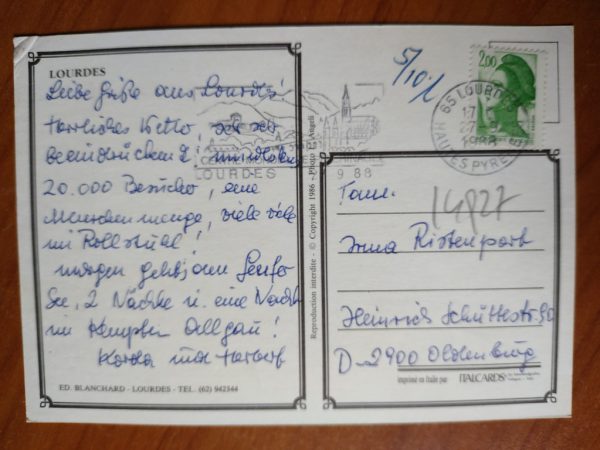 LOURDES
Liebe Grüße aus Lourdes!
herrliches Wetter, sehr sehr
beeindruckend! mindestens
20.000 Besucher, eine
Menschenmenge, viele viele
im Rollstuhl!
morgen geht's an Genfer
See, 2 Nächte u. eine Nacht
im Kempten Allgäu!
und
ED. BLANCHARD - LOURDES - TEL. (62) 942344
Reproduction interdite - © Copyright 1986 - Photo Et. Angeli
5/10.
LOURDES
9 88
2,00
65 LOURDES
HAUTES PYRENEES
14927
Irma Rittenport
Heinrich Schüttestr. 90
D-2900 Oldenburg
imprimé en Italie par ITALCARDS